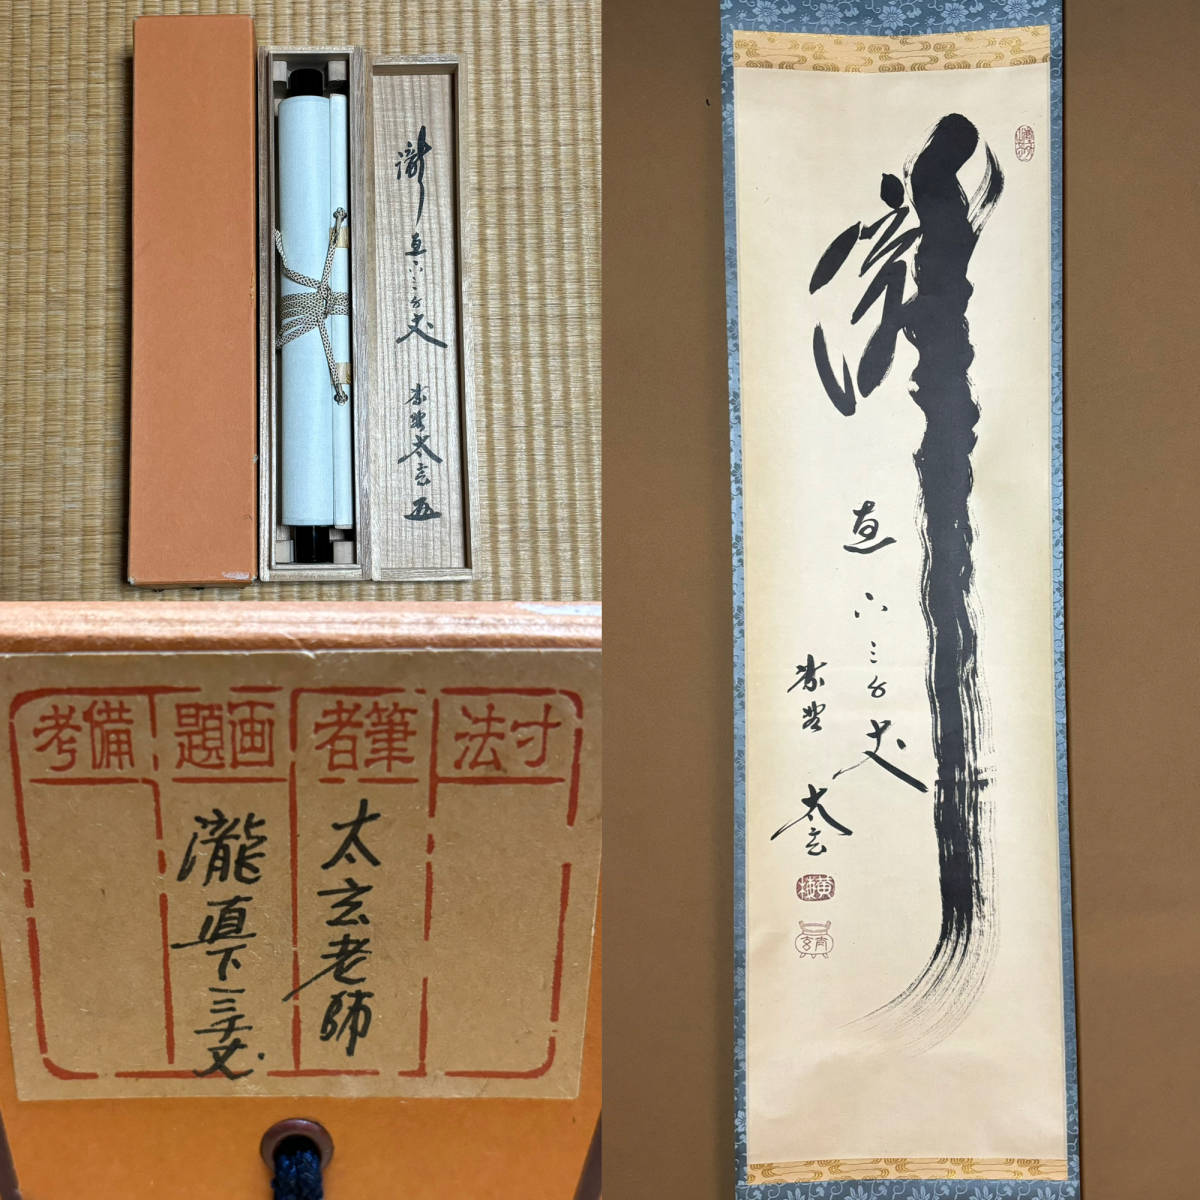 瀧
直下三千丈
紫野
太玄
瀧
直下三千丈
紫野太玄
寸法
筆者
画題
備考
太玄老師
瀧直下三千丈